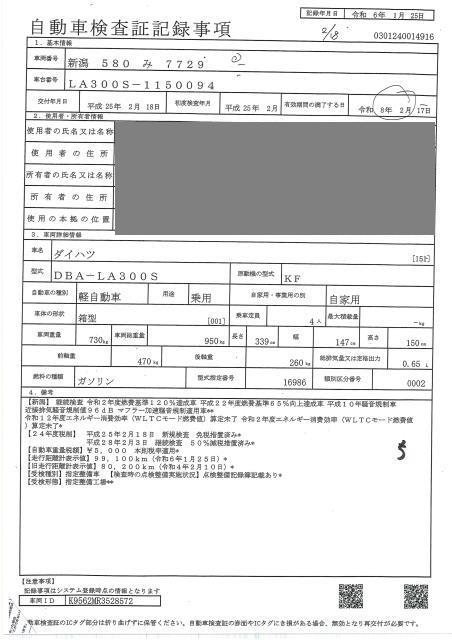 記録年月日 令和 6年 1月 25日
自動車検査証記録事項
2/8
0301240014916
1. 基本情報
車両番号 新潟 580 み 7729
車台番号 LA300S-1150094
交付年月日 平成 25年 2月 18日 初度検査年月 平成 25年 2月 有効期間の満了する日 令和 8年 2月 17日
2. 使用者・所有者情報
使用者の氏名又は名称
使用者の住所
所有者の氏名又は名称
所有者の住所
使用の本拠の位置
3. 車両詳細情報
車名 ダイハツ [151]
型式 DBA-LA300S 原動機の型式 KF
自動車の種別 軽自動車 用途 乗用 自家用・事業用の別 自家用
車体の形状 箱型 [001] 乗車定員 4人 最大積載量 -kg
車両重量 730kg 車両総重量 950kg 長さ 339cm 幅 147cm 高さ 150cm
前軸重 470kg 後軸重 260kg 総排気量又は定格出力 0.65 L
燃料の種類 ガソリン 型式指定番号 16986 類別区分番号 0002
4. 備考
【新潟】 継続検査 令和2年度燃費基準120%達成車 平成22年度燃費基準65%向上達成車 平成10年騒音規制車
近接排気騒音規制値96dB マフラー加速騒音規制適用車**
令和12年度エネルギー消費効率(WLTCモード燃費値)算定未了 令和2年度エネルギー消費効率(WLTCモード燃費値
)算定未了*
【24年度税制】 平成25年2月18日 新規検査 免税措置済み*
平成28年2月3日 継続検査 50%減税措置済み*
【自動車重量税額】¥5,000 本則税率適用*
【走行距離計表示値】99,100km(令和6年1月25日)*
【旧走行距離計表示値】80,200km(令和4年2月10日)*
【受検種別】指定整備車 【検査時の点検整備実施状況】点検整備記録簿記載あり*
【受検形態】指定整備工場**
5
【注意事項】
記録事項はシステム登録時点の情報となります
車両ID K9562MR3528572
動車検査証のICタグ部分は折り曲げずに保管ください。自動車検査証の券面やICタグに汚損がある場合、無効となり再交付が必要です。